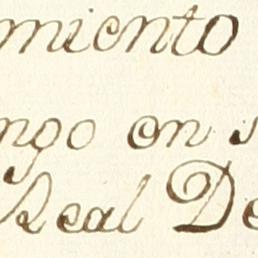 miento
ngo en s
Real De